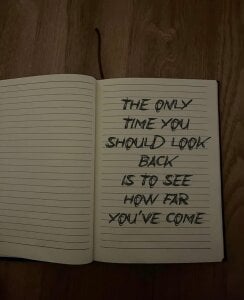 THE ONLY
TIME YOU
SHOULD LOOK
BACK
IS TO SEE
HOW FAR
YOU'VE COME